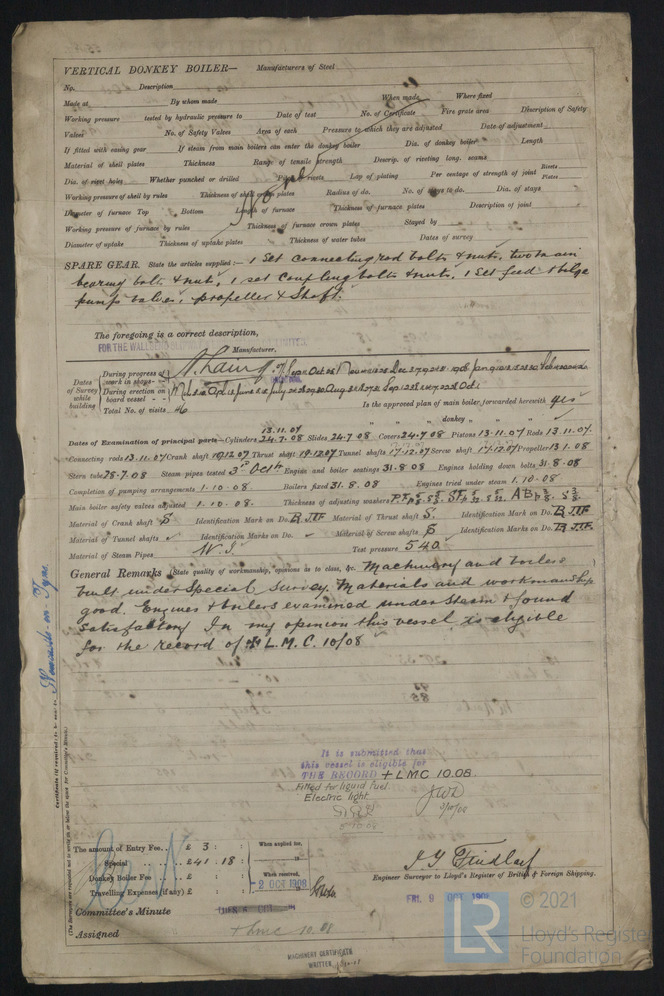 VERTICAL DONKEY BOILER— Manufacturers of Steel
No. Description
Made at By whom made When made Where fixed
Working pressure tested by hydraulic pressure to Date of test No. of Certificate Fire grate area Description of Safety
Valves No. of Safety Valves Area of each Pressure to which they are adjusted Date of adjustment
If fitted with easing gear If steam from main boilers can enter the donkey boiler Dia. of donkey boiler Length
Material of shell plates Thickness Range of tensile strength Descrip. of riveting long. seams
Dia. of rivet holes Whether punched or drilled Pitch of rivets Lap of plating Per centage of strength of joint Rivets Plates
Working pressure of shell by rules Thickness of shell crown plates Radius of do. No. of stays to do. Dia. of stays
Diameter of furnace Top Bottom Length of furnace Thickness of furnace plates Description of joint
Working pressure of furnace by rules Thickness of furnace crown plates Stayed by
Diameter of uptake Thickness of uptake plates Thickness of water tubes Dates of survey
SPARE GEAR. State the articles supplied:— 1 set connecting rod bolts & nuts, two main
bearing bolts & nuts, 1 set coupling bolts & nuts, 1 set feed & bilge
pump valves, propeller & shaft.
The foregoing is a correct description,
FOR THE WALLSEND
Manufacturer.
Dates of Survey while building
During progress of work in shops--
During erection on board vessel --
Total No. of visits 46 Is the approved plan of main boiler forwarded herewith yes
" " " donkey " " "
Dates of Examination of principal parts—Cylinders 13.11.07 24.7.08 Slides 24.7.08 Covers 24.7.08 Pistons 13.11.07 Rods 13.11.07
Connecting rods 13.11.07 Crank shaft 19.12.07 Thrust shaft 19.12.07 Tunnel shafts 17.12.07 Screw shaft 17.12.07 Propeller
Stern tube 28.7.08 Steam pipes tested 3rd Octr Engine and boiler seatings 31.8.08 Engines holding down bolts 31.8.08
Completion of pumping arrangements 1.10.08 Boilers fixed 31.8.08 Engines tried under steam 1.10.08
Main boiler safety valves adjusted 1.10.08 Thickness of adjusting washers
Material of Crank shaft S Identification Mark on Do. Material of Thrust shaft S Identification Mark on Do.
Material of Tunnel shafts Identification Marks on Do. Material of Screw shafts S Identification Marks on Do.
Material of Steam Pipes W.I. Test pressure 540
General Remarks (State quality of workmanship, opinions as to class, &c. Machinery and boilers
built under Special Survey. Materials and workmanship
good. Engines & boilers examined under steam & found
satisfactory In my opinion this vessel is eligible
for the record of L.M.C. 10/08
Newcastle-on-Tyne.
It is submitted that
this vessel is eligible for
THE RECORD + LMC 10.08
Fitted for liquid fuel.
Electric light
The amount of Entry Fee.. £ 3 : : When applied for,
Special £41 : 18 :
Donkey Boiler Fee £ : : When received,
Travelling Expenses (if any) £ : : 2 OCT 1908
Engineer Surveyor to Lloyd's Register of British & Foreign Shipping.
Committee's Minute FRI. 9 OCT 190
Assigned + LMC 10.08
MACHINERY CERTIFICATE
WRITTEN
© 2021
LR
Lloyd's Register
Foundation